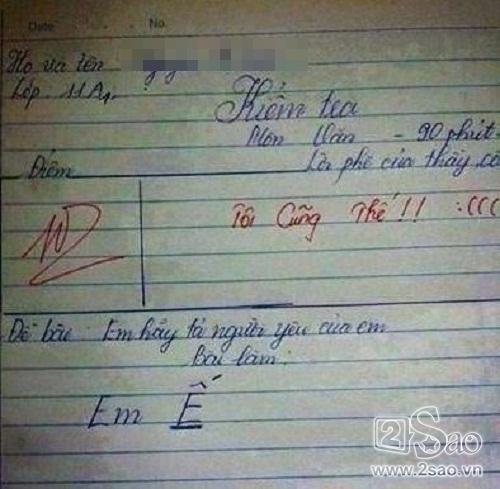 Date No.
Họ và tên
Lớp 11A1
Kiểm tra
Môn Văn - 90 phút
Điểm
Lời phê của thầy, cô
10
Tôi Cũng Thế!! :(((
Đề bài: Em hãy tả người yêu của em
Bài làm:
Em Ế
2Sao
www.2sao.vn